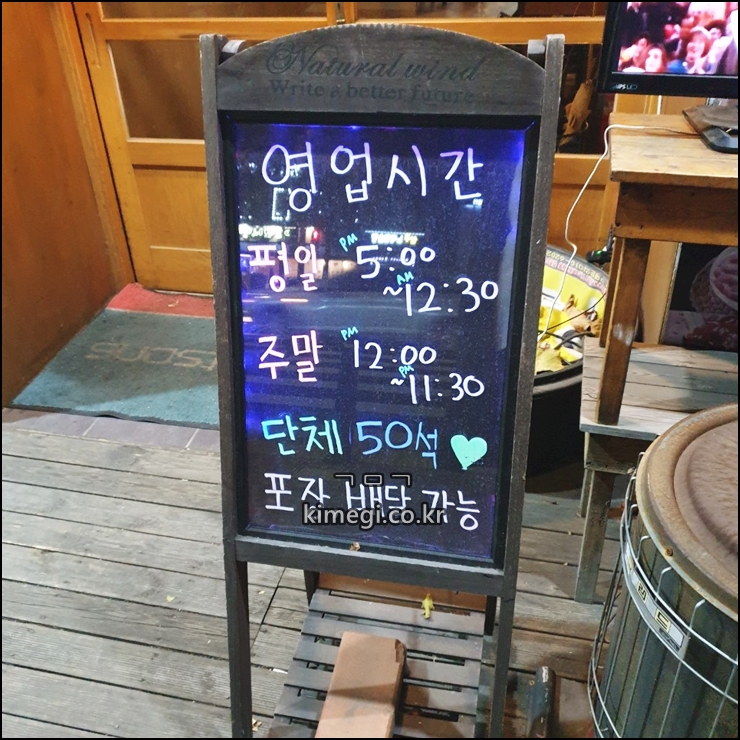 Natural wind
Write a better future
영업시간
평일 PM 5:00
~AM 12:30
주말 PM 12:00
~PM 11:30
단체 50석
포장 배달 가능
kimegi.co.kr